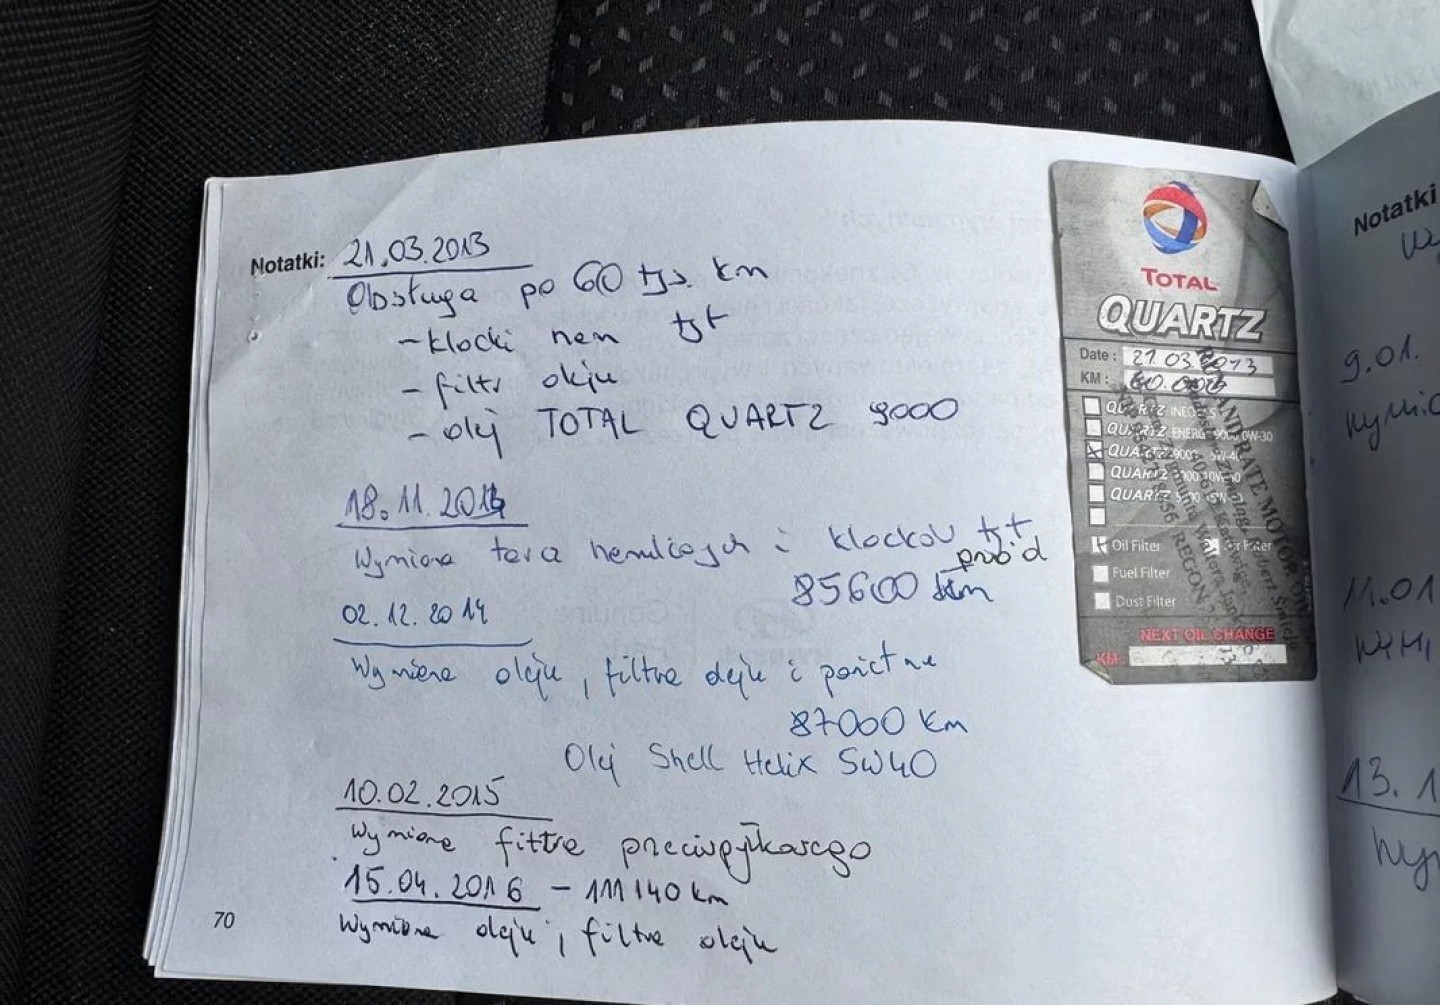 Notatki: 21.03.2013
Obsługa po 60 tys. km
- klocki ham tył
- filtr oleju
- olej TOTAL QUARTZ 9000
18.11.2014
Wymiana tarcz hamulcowych i klocków tył
przód
85600 km
02.12.2014
Wymiana oleju, filtra oleju i powietrza
87000 km
Olej Shell Helix 5W40
10.02.2015
Wymiana filtra przeciwpyłkowego
15.04.2016 - 111140 km
Wymiana oleju, filtra oleju
70
TOTAL
QUARTZ
Date: 21.03.2013
KM: 60.000
QUARTZ INEO
QUARTZ ENERGY 9000 0W-30
QUARTZ 9000 5W-40
QUARTZ
QUARTZ
Oil Filter
Air Filter
Fuel Filter
Dust Filter
NEXT OIL CHANGE
KM:
REGON
Notatki
9.01.
11.01
13.1